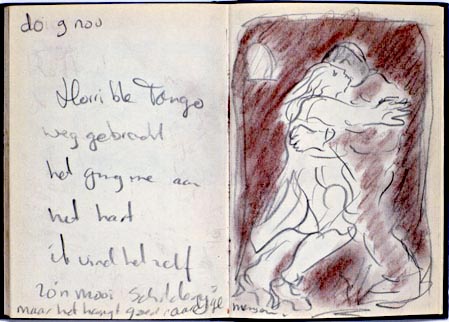 do 9 nov
Horrible Tango
weg gebracht
het ging me aan
het hart
ik vind het zelf
zo'n mooi schilderij
maar het hangt goed